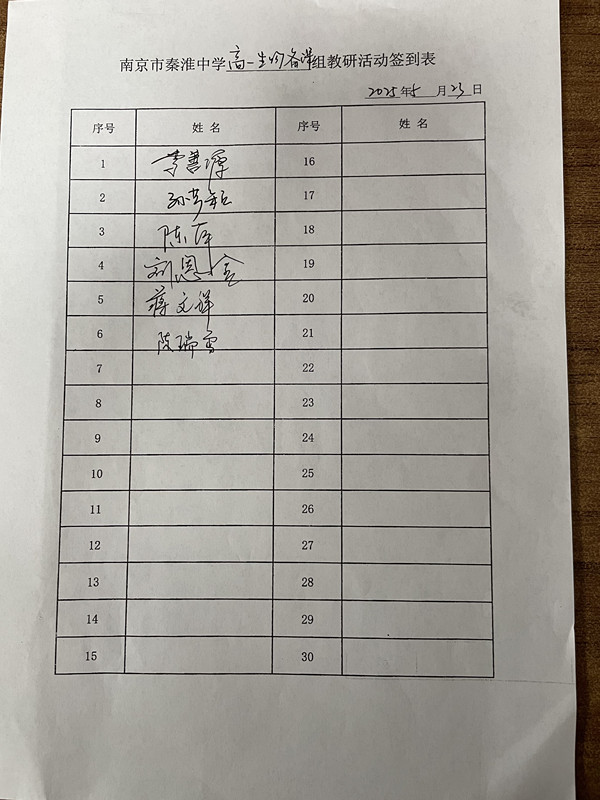 南京市秦淮中学高一生物备课组教研活动签到表
2025年5月23日
序号 姓名 序号 姓名
1 李善潭 16
2 孙梦 17
3 陈萍 18
4 刘恩金 19
5 蒋文祥 20
6 陈瑞雪 21
7 22
8 23
9 24
10 25
11 26
12 27
13 28
14 29
15 30